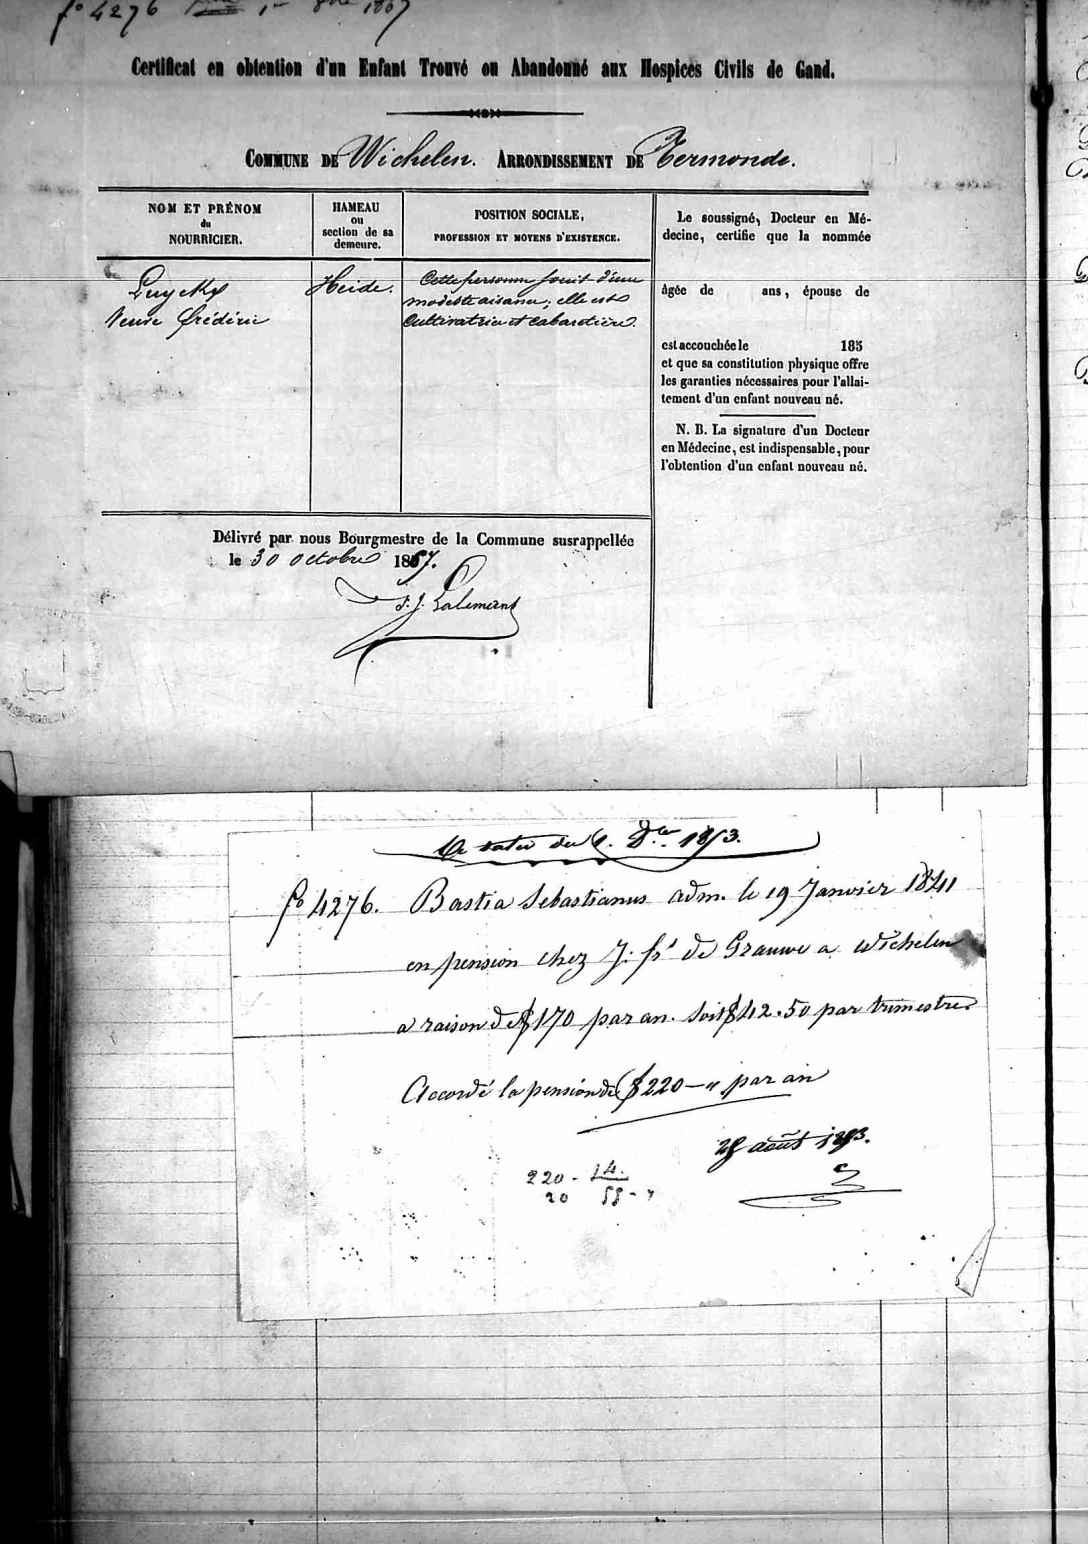 fo 4276 1867
Certificat en obtention d'un Enfant Trouvé ou Abandonné aux Hospices Civils de Gand.
COMMUNE DE Wichelen. ARRONDISSEMENT DE Termonde.
NOM ET PRÉNOM
du
NOURRICIER.
HAMEAU
ou
section de sa
demeure.
POSITION SOCIALE,
PROFESSION ET MOYENS D'EXISTENCE.
Luyckx
Veuve Frédéric
Heide.
Cette personne jouit d'une
modeste aisance; elle est
Cultivatrice et cabaretière.
Le soussigné, Docteur en Mé-
decine, certifie que la nommée
âgée de ans, épouse de
est accouchée le 185
et que sa constitution physique offre
les garanties nécessaires pour l'allai-
tement d'un enfant nouveau né.
N. B. La signature d'un Docteur
en Médecine, est indispensable, pour
l'obtention d'un enfant nouveau né.
Délivré par nous Bourgmestre de la Commune susrappellée
le 30 octobre 1867.
J. Lalemant
A dater du 1. Dre. 1873.
fo 4276. Bastia Sebastianus adm. le 19 Janvier 1841
en pension chez J: fs de Grauwe a wichelen
a raison de f 170 par an. soit f 42.50 par trimestre
Accordé la pension de f 220 — " par an
28 août 1873.
220 - 4.
20 55 - "